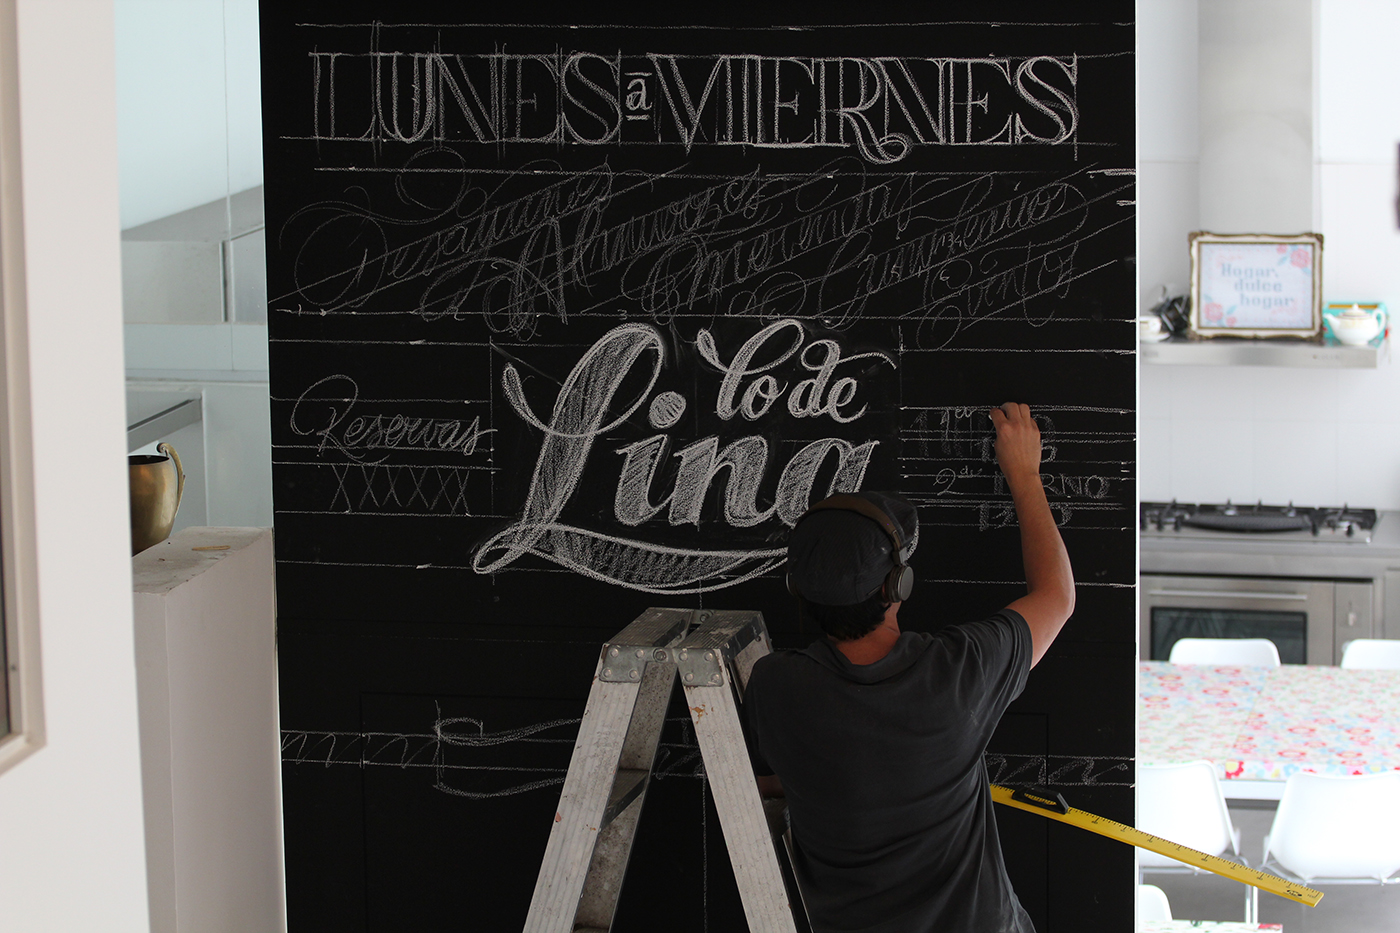 LUNES a VIERNES
Desayunos
Almuerzos
Meriendas
Eventos
lo de
Lina
Reservas
XXXXXX
1er
2do TURNO
Hogar,
dulce
hogar